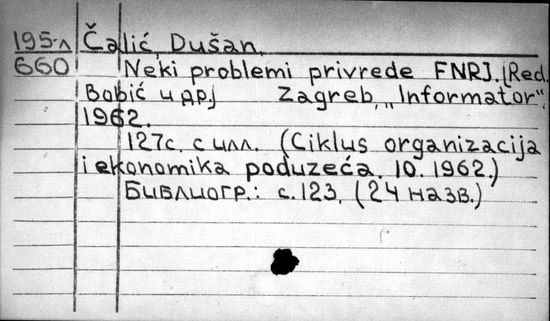 195-л Čalić, Dušan.
660 Neki problemi privrede FNRJ. [Red.
Babić и др] Zagreb, „Informator”,
1962.
127с. с илл. (Ciklus organizacija
i ekonomika poduzeća. 10. 1962.)
Библиогр.: с.123. (24 назв.)